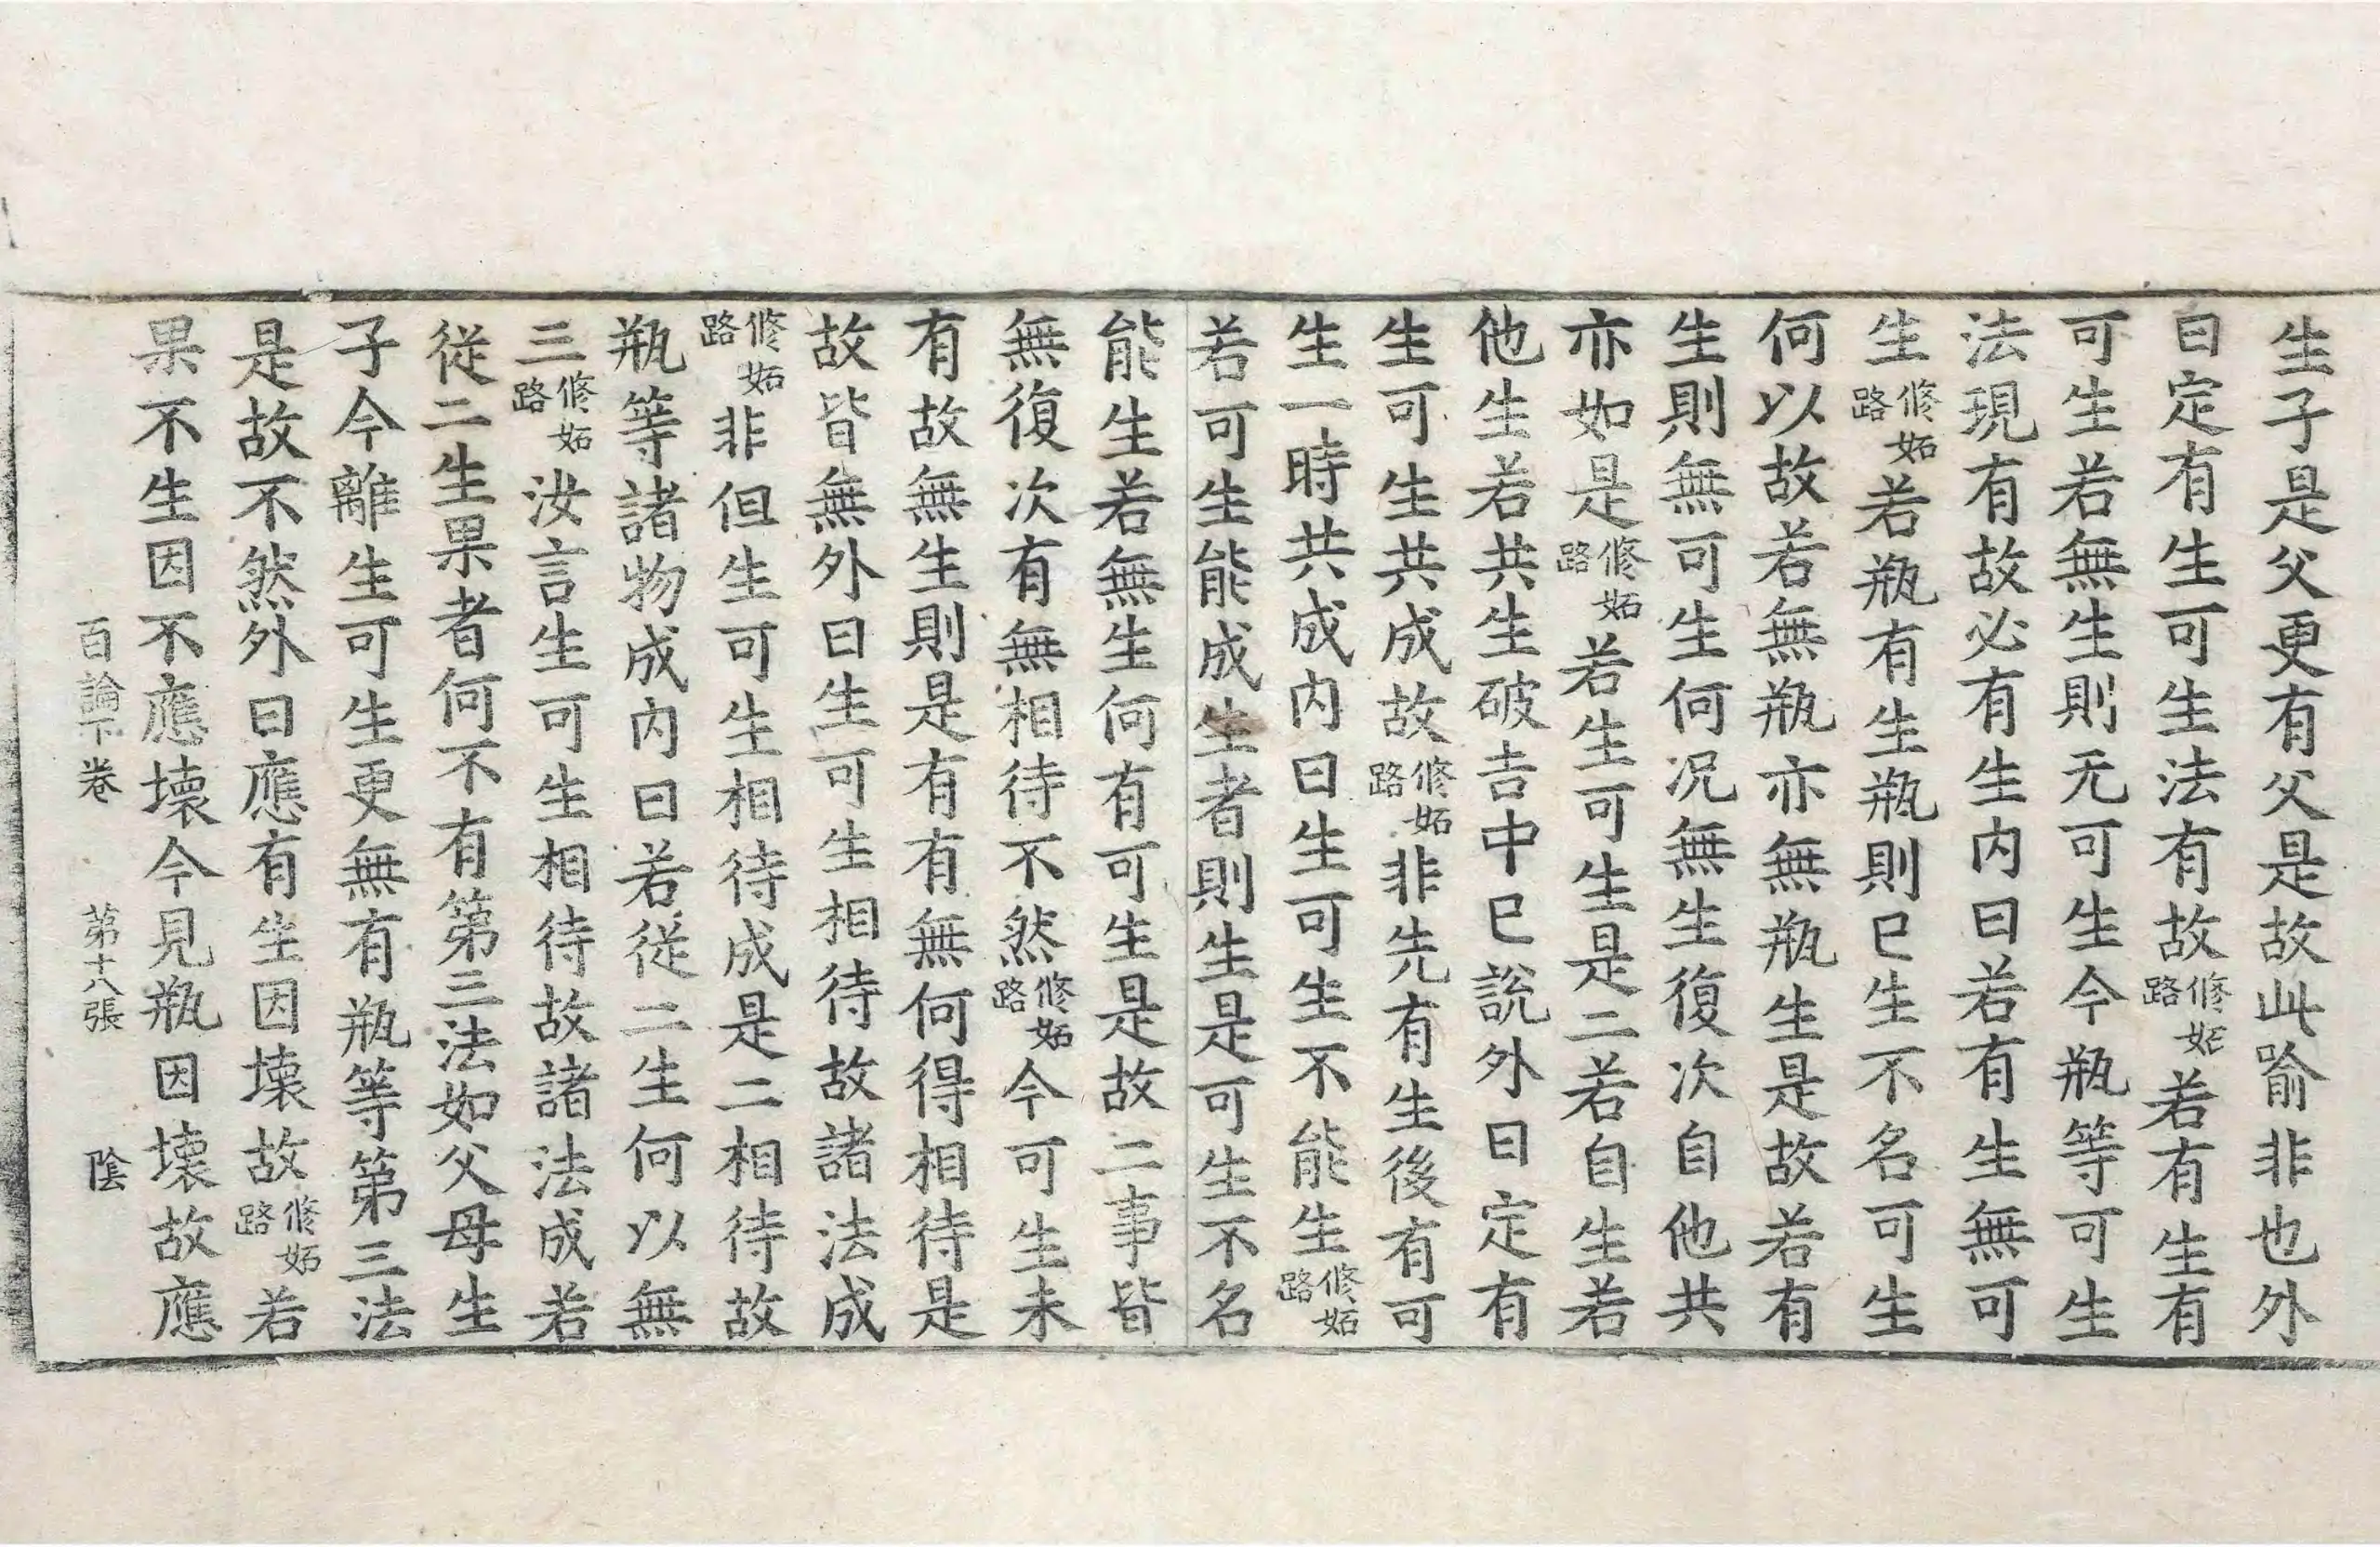 生子是父更有父是故此喻非也外
曰定有生可生法有故修妬路若有生有
可生若無生則无可生今瓶等可生
法現有故必有生内曰若有生無可
生修妬路若瓶有生瓶則已生不名可生
何以故若無瓶亦無瓶生是故若有
生則無可生何況無生復次自他共
亦如是修妬路若生可生是二若自生若
他生若共生破吉中已說外曰定有
生可生共成故修妬路非先有生後有可
生一時共成内曰生可生不能生修妬路
若可生能成生者則生是可生不名
能生若無生何有可生是故二事皆
無復次有無相待不然修妬路今可生未
有故無生則是有有無何得相待是
故皆無外曰生可生相待故諸法成
修妬路非但生可生相待成是二相待故
瓶等諸物成内曰若從二生何以無
三修妬路汝言生可生相待故諸法成若
從二生果者何不有第三法如父母生
子今離生可生更無有瓶等第三法
是故不然外曰應有生因壞故修妬路若
果不生因不應壞今見瓶因壞故應
百論下卷 第十八張 陰